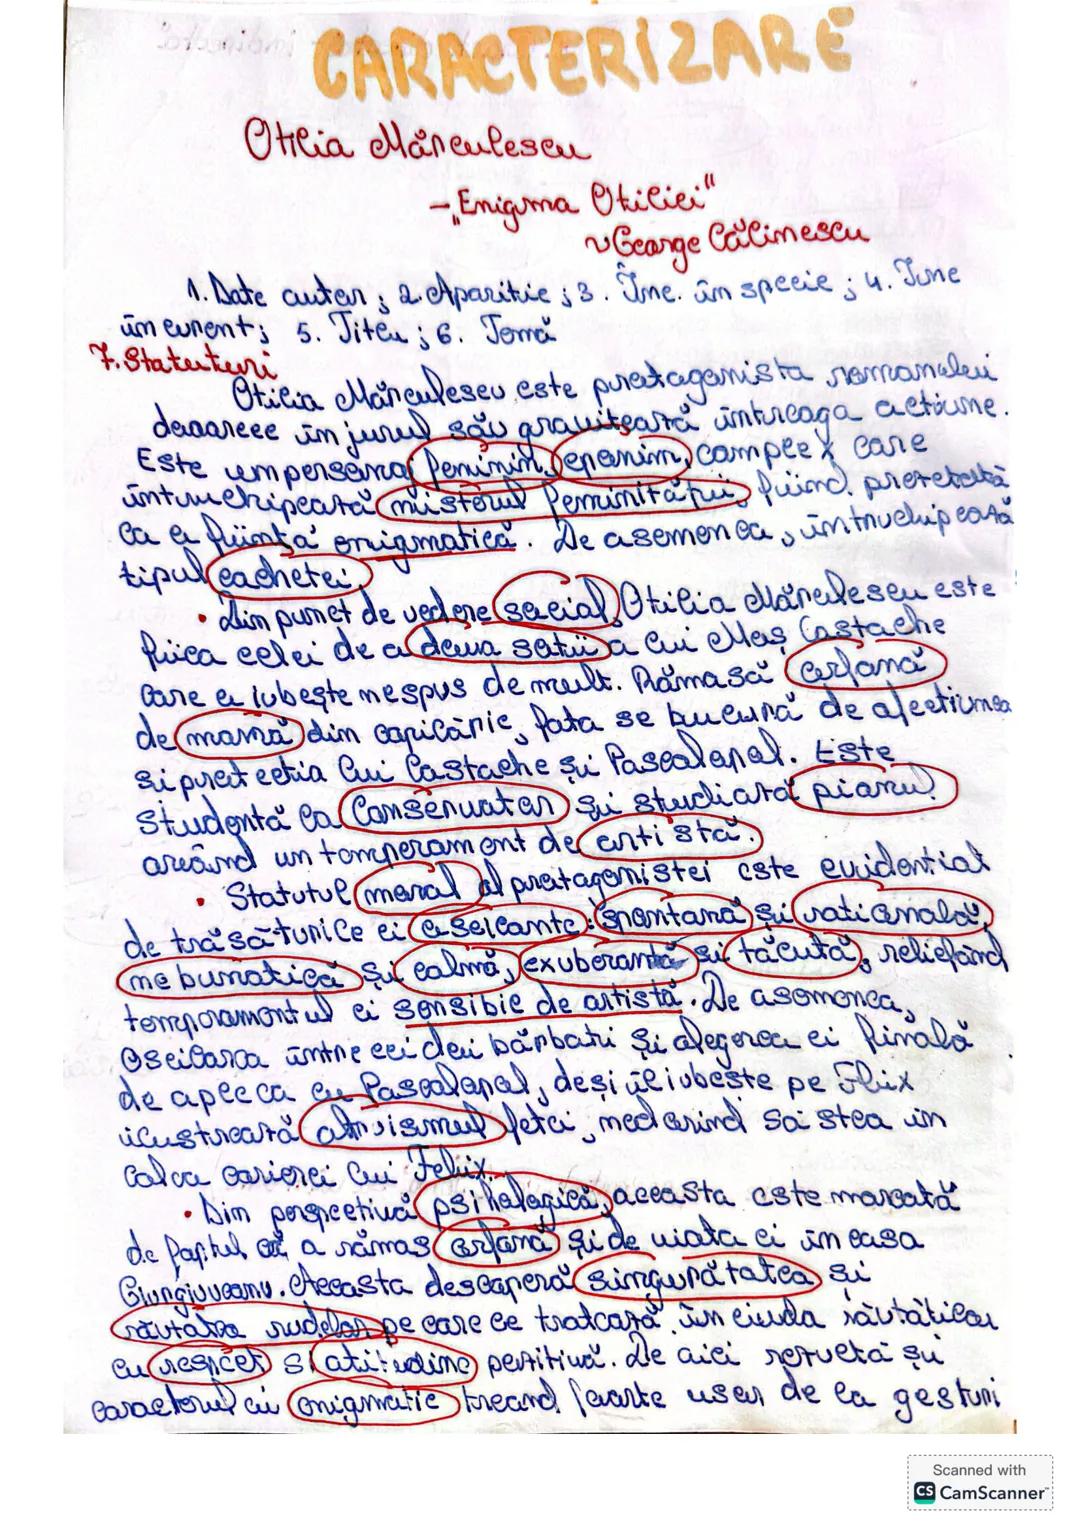 CARACTERIZARE
Otilia Mărculescu
- „Enigma Otiliei"
~ George Călinescu
1. Date autor ; 2. Apariție ; 3. Înc. în specie ; 4. Înc
în curent ; 5. Titlu ; 6. Temă
7. Statuturi
Otilia Mărculescu este protagonista romanului
deoarece în jurul său gravitează întreaga acțiune.
Este un personaj feminin, eponim, complex care
întruchipează misterul feminității, fiind
ca o ființă enigmatică. De asemenea, întruchipează
tipul cochetei.
• Din punct de vedere social, Otilia Mărculescu este
fiica celei de a doua soții a lui Moș Costache
care o iubește nespus de mult. Rămasă orfană
de mamă din copilărie, fata se bucură de afecțiunea
și protecția lui Costache și Pascalopol. Este
studentă la Conservator și studiază pianul
având un temperament de artistă.
• Statutul moral al protagonistei este evidențiat
de trăsăturile ei oscilante: spontană și rațională,
nebunatică și calmă, exuberantă și tăcută, reliefând
temperamentul ei sensibil de artistă. De asemenea,
oscilarea între cei doi bărbați și alegerea ei finală
de a pleca cu Pascalopol, deși îl iubește pe Felix
ilustrează altruismul fetei, nedorind să stea în
calea carierei lui Felix.
• Din perspectivă psihologică, aceasta este marcată
de faptul că a rămas orfană și de viața ei în casa
Giurgiuveanu. Aceasta descoperă singurătatea și
răutatea rudelor pe care le tratează, în ciuda răutăților
cu respect și atitudine pozitivă. De aici rezultă și
caracterul ei enigmatic trecând foarte ușor de la gesturi
Scanned with
CS CamScanner